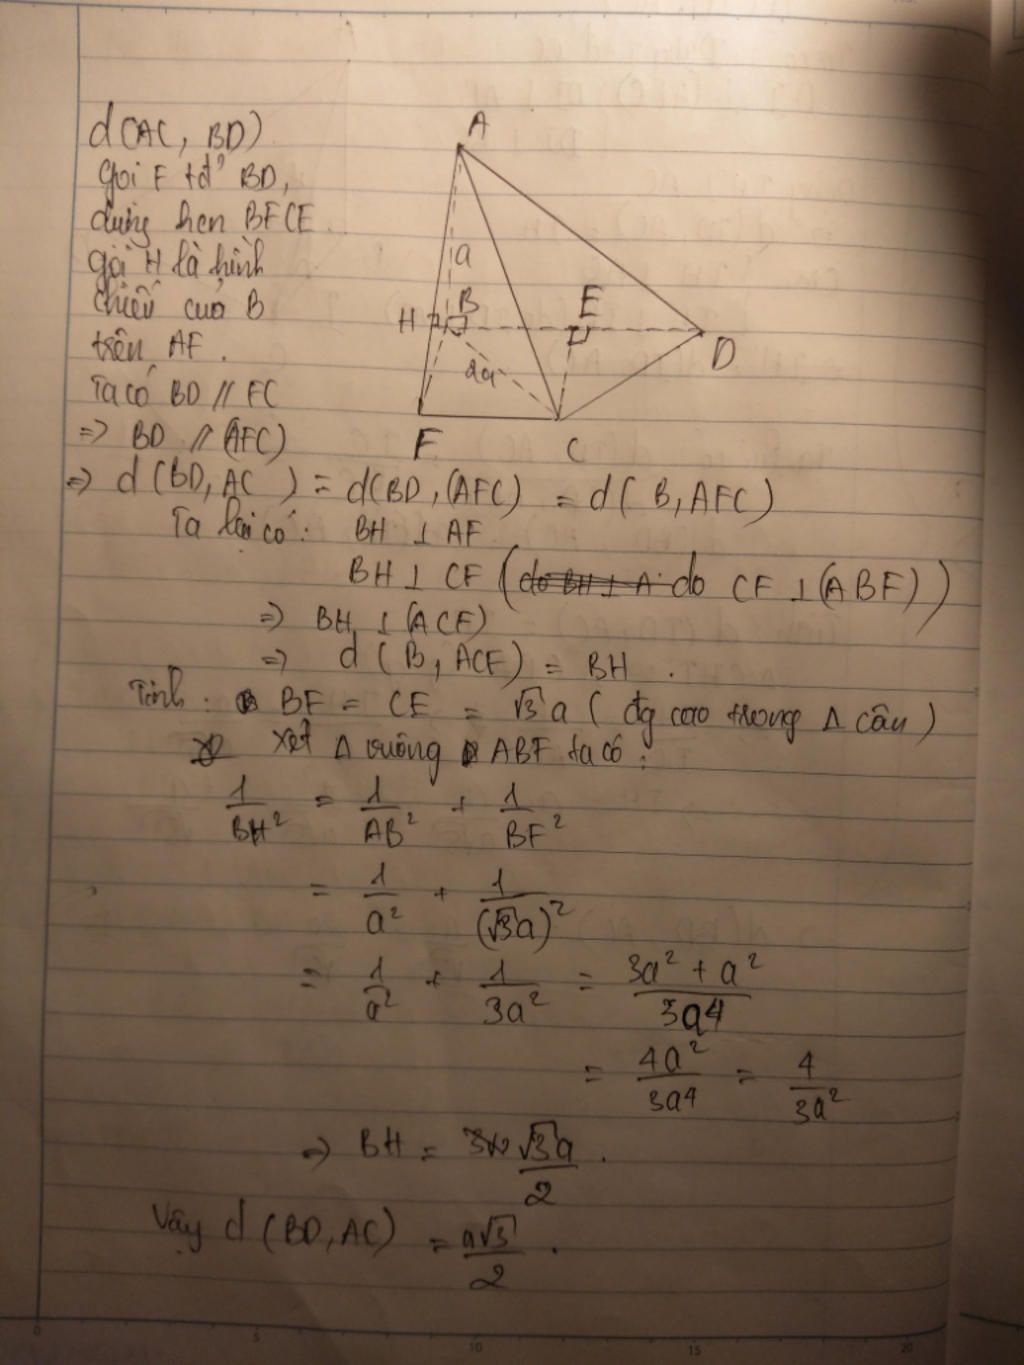 d(AC, BD)
Gọi F tđ' BD,
dựng hcn BFCE
gọi H là hình
chiếu của B
trên AF.
Ta có BD // FC
=> BD // (AFC)
=> d(BD, AC) = d(BD, (AFC) = d(B, AFC)
Ta lại có: BH ⊥ AF
BH ⊥ CF (do BH ⊥ A do CF ⊥ (ABF))
=> BH ⊥ (ACF)
=> d(B, ACF) = BH.
Tính: BF = CE = √3a (đg cao trong Δ cân)
Xét Δ vuông ABF ta có:
1/BH² = 1/AB² + 1/BF²
= 1/a² + 1/(√3a)²
= 1/a² + 1/3a² = 3a² + a²/3a⁴
= 4a²/3a⁴ = 4/3a²
=> BH = √3a/2.
Vậy d(BD, AC) = a√3/2.
A
a
H
B
E
D
2a
F
C
0 5 10 15 20